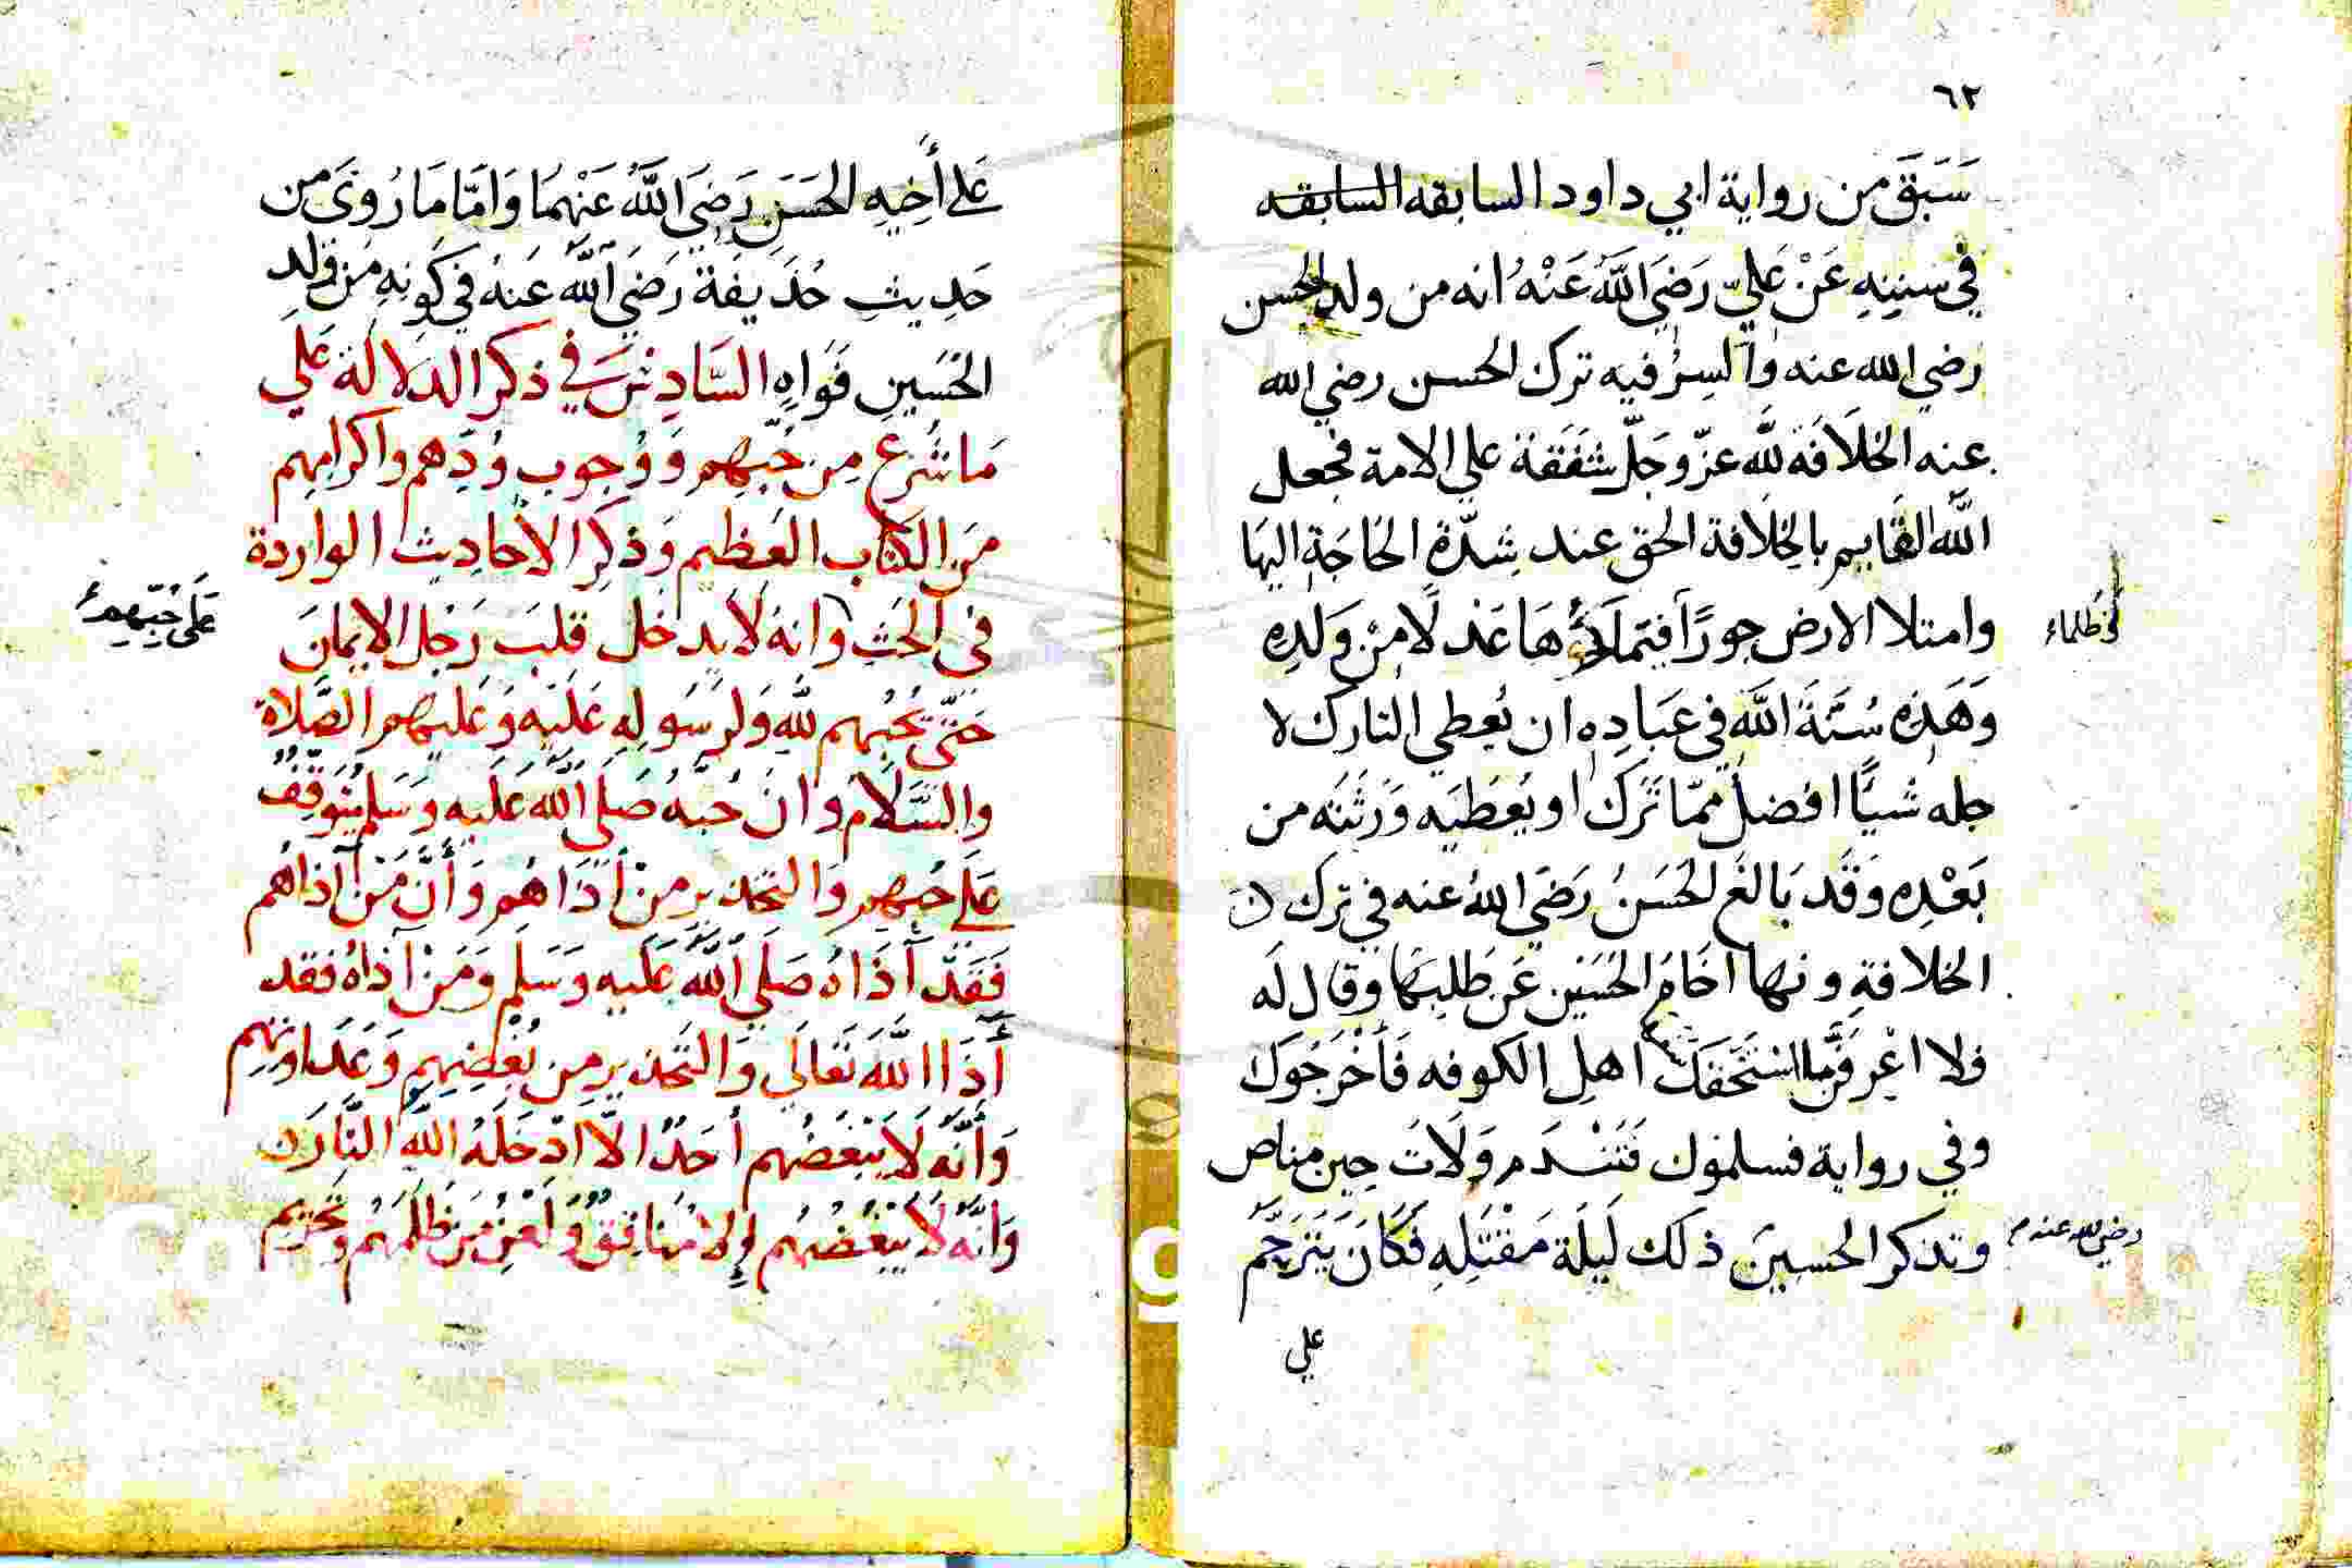 ٦٢
سَبَقَ من رواية ابي داود السابقه السابقه
في سننِهِ عَنْ عَليّ رَضيَ اللَّهُ عَنْهُ انه من ولد الحسن
رضي الله عنه وَالسِرُّ فيه ترك الحسن رضي الله
عنه الخلَافَة للَّه عزّ وَجَلّ شَفَقة على الامة فجعل
اللَّه القَايم بالخِلَافة الحق عند شِدّةِ الحَاجَةِ اليهَا
وامتلا الارض جورًا فيَملَأُهَا عَدلًا مِنْ وَلَدِهِ
ظلماء
وَهَذِهِ سُنَّةُ اللَّه في عبَادِهِ ان يُعطي التارك لا
جله شيًا افضل مِمّا تَرَكَ او يُعطيَه وَرَثَتَه من
بَعْدِهِ وَقَد بَالغَ الحَسَنُ رَضيَ اللهُ عنه في ترك
الخلافةِ ونها اخَاهُ الحُسَين عَن طَلَبِهَا وقال لَه
فلا اعْرفَنَّ ما استَخفَّكَ اهل الكوفه فَأخْرَجُوكَ
وفي رواية فسلموك فَتَنْدَم وَلَاتَ حِين مناص
وتذكر الحسينَ ذلك لَيلَة مَقْتَلِهِ فَكَانَ يَتَرَحَّمُ
رضي الله عنه
علي
عَلى أَخِيهِ الحَسَنِ رَضيَ اللَّهُ عَنْهُمَا وَامَّا مَا رُويَ من
حَدِيثِ حُذَيفَة رَضيَ اللَّه عَنهُ في كَونِهِ مِن ولدِ
الحُسَينِ فَوَاهٍ السَّادِسُ في ذكر الدلَالة عَلى
مَا شُرعَ مِن حُبّهِم وَوُجوب وُدّهم واكرامهم
مَن الكتاب العَظيم وَذكرِ الاحَادِيث الواردة
في الحَثِّ وانهُ لَا يدخل قلبَ رَجُل الايمانَ
عَلَى حُبّهم
حَتّى يُحبّهم للَّه وَلرَسُولِهِ عَلَيه وَعَليهم الصَّلاة
وَالسَّلَام وانَ حُبَّهُ صَلى اللَّه عَلَيه وَسَلم يَتَوَقَّفُ
عَلَى حُبهم وَالتحذير مِنْ أَذَاهُم وَأَنَّ مَنْ آذاهم
فَقَد آذَاهُ صَلى اللَّه عَلَيه وَسَلم وَمَنْ آذاهُ فقد
آذَا اللَّهَ تَعَالَى وَالتَحذير مِن بُغْضِهِم وَعَدَاوَتهِم
وَأَنَّه لَا يَبْغَضُهم أحَدٌ الّا ادْخَلَهُ اللَّه النَّارَ
وَأنّه لَا يَبْغُضُهُم إِلا مُنَافِقٌ وَلَعْنِ مَن ظَلَمَهُم وتحريم